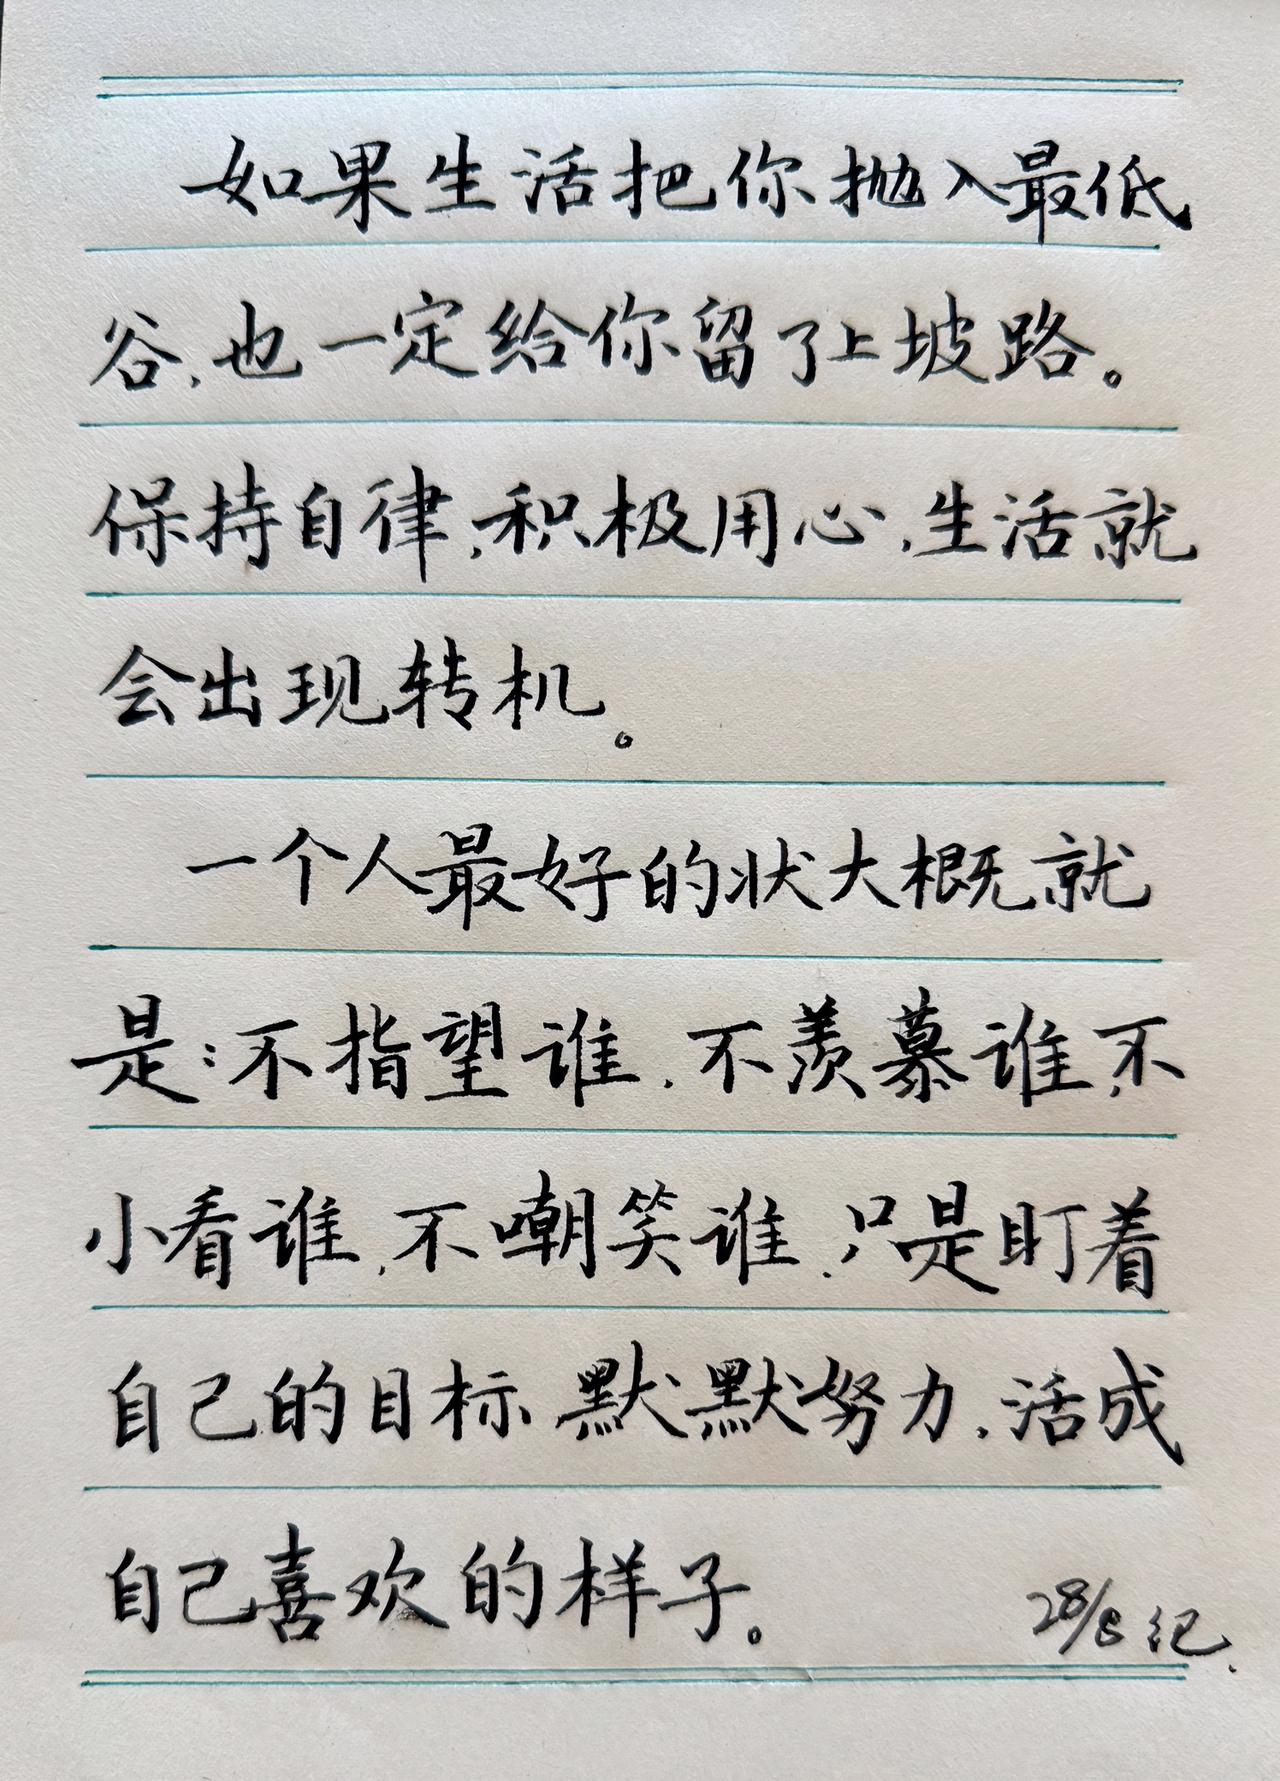 如果生活把你抛入最低
谷,也一定给你留了上坡路。
保持自律,积极用心,生活就
会出现转机。
一个人最好的状大概就
是:不指望谁,不羡慕谁,不
小看谁,不嘲笑谁,只是盯着
自己的目标,默默努力,活成
自己喜欢的样子。
28/8 纪.